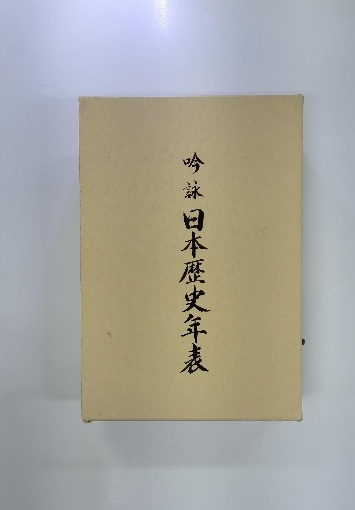 吟詠日本歴史年表